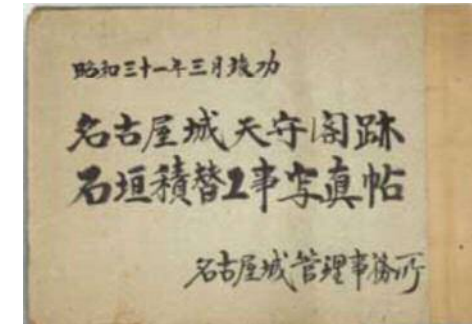 昭和三十一年三月竣功
名古屋城天守閣跡
石垣積替工事写真帖
名古屋城管理事務所